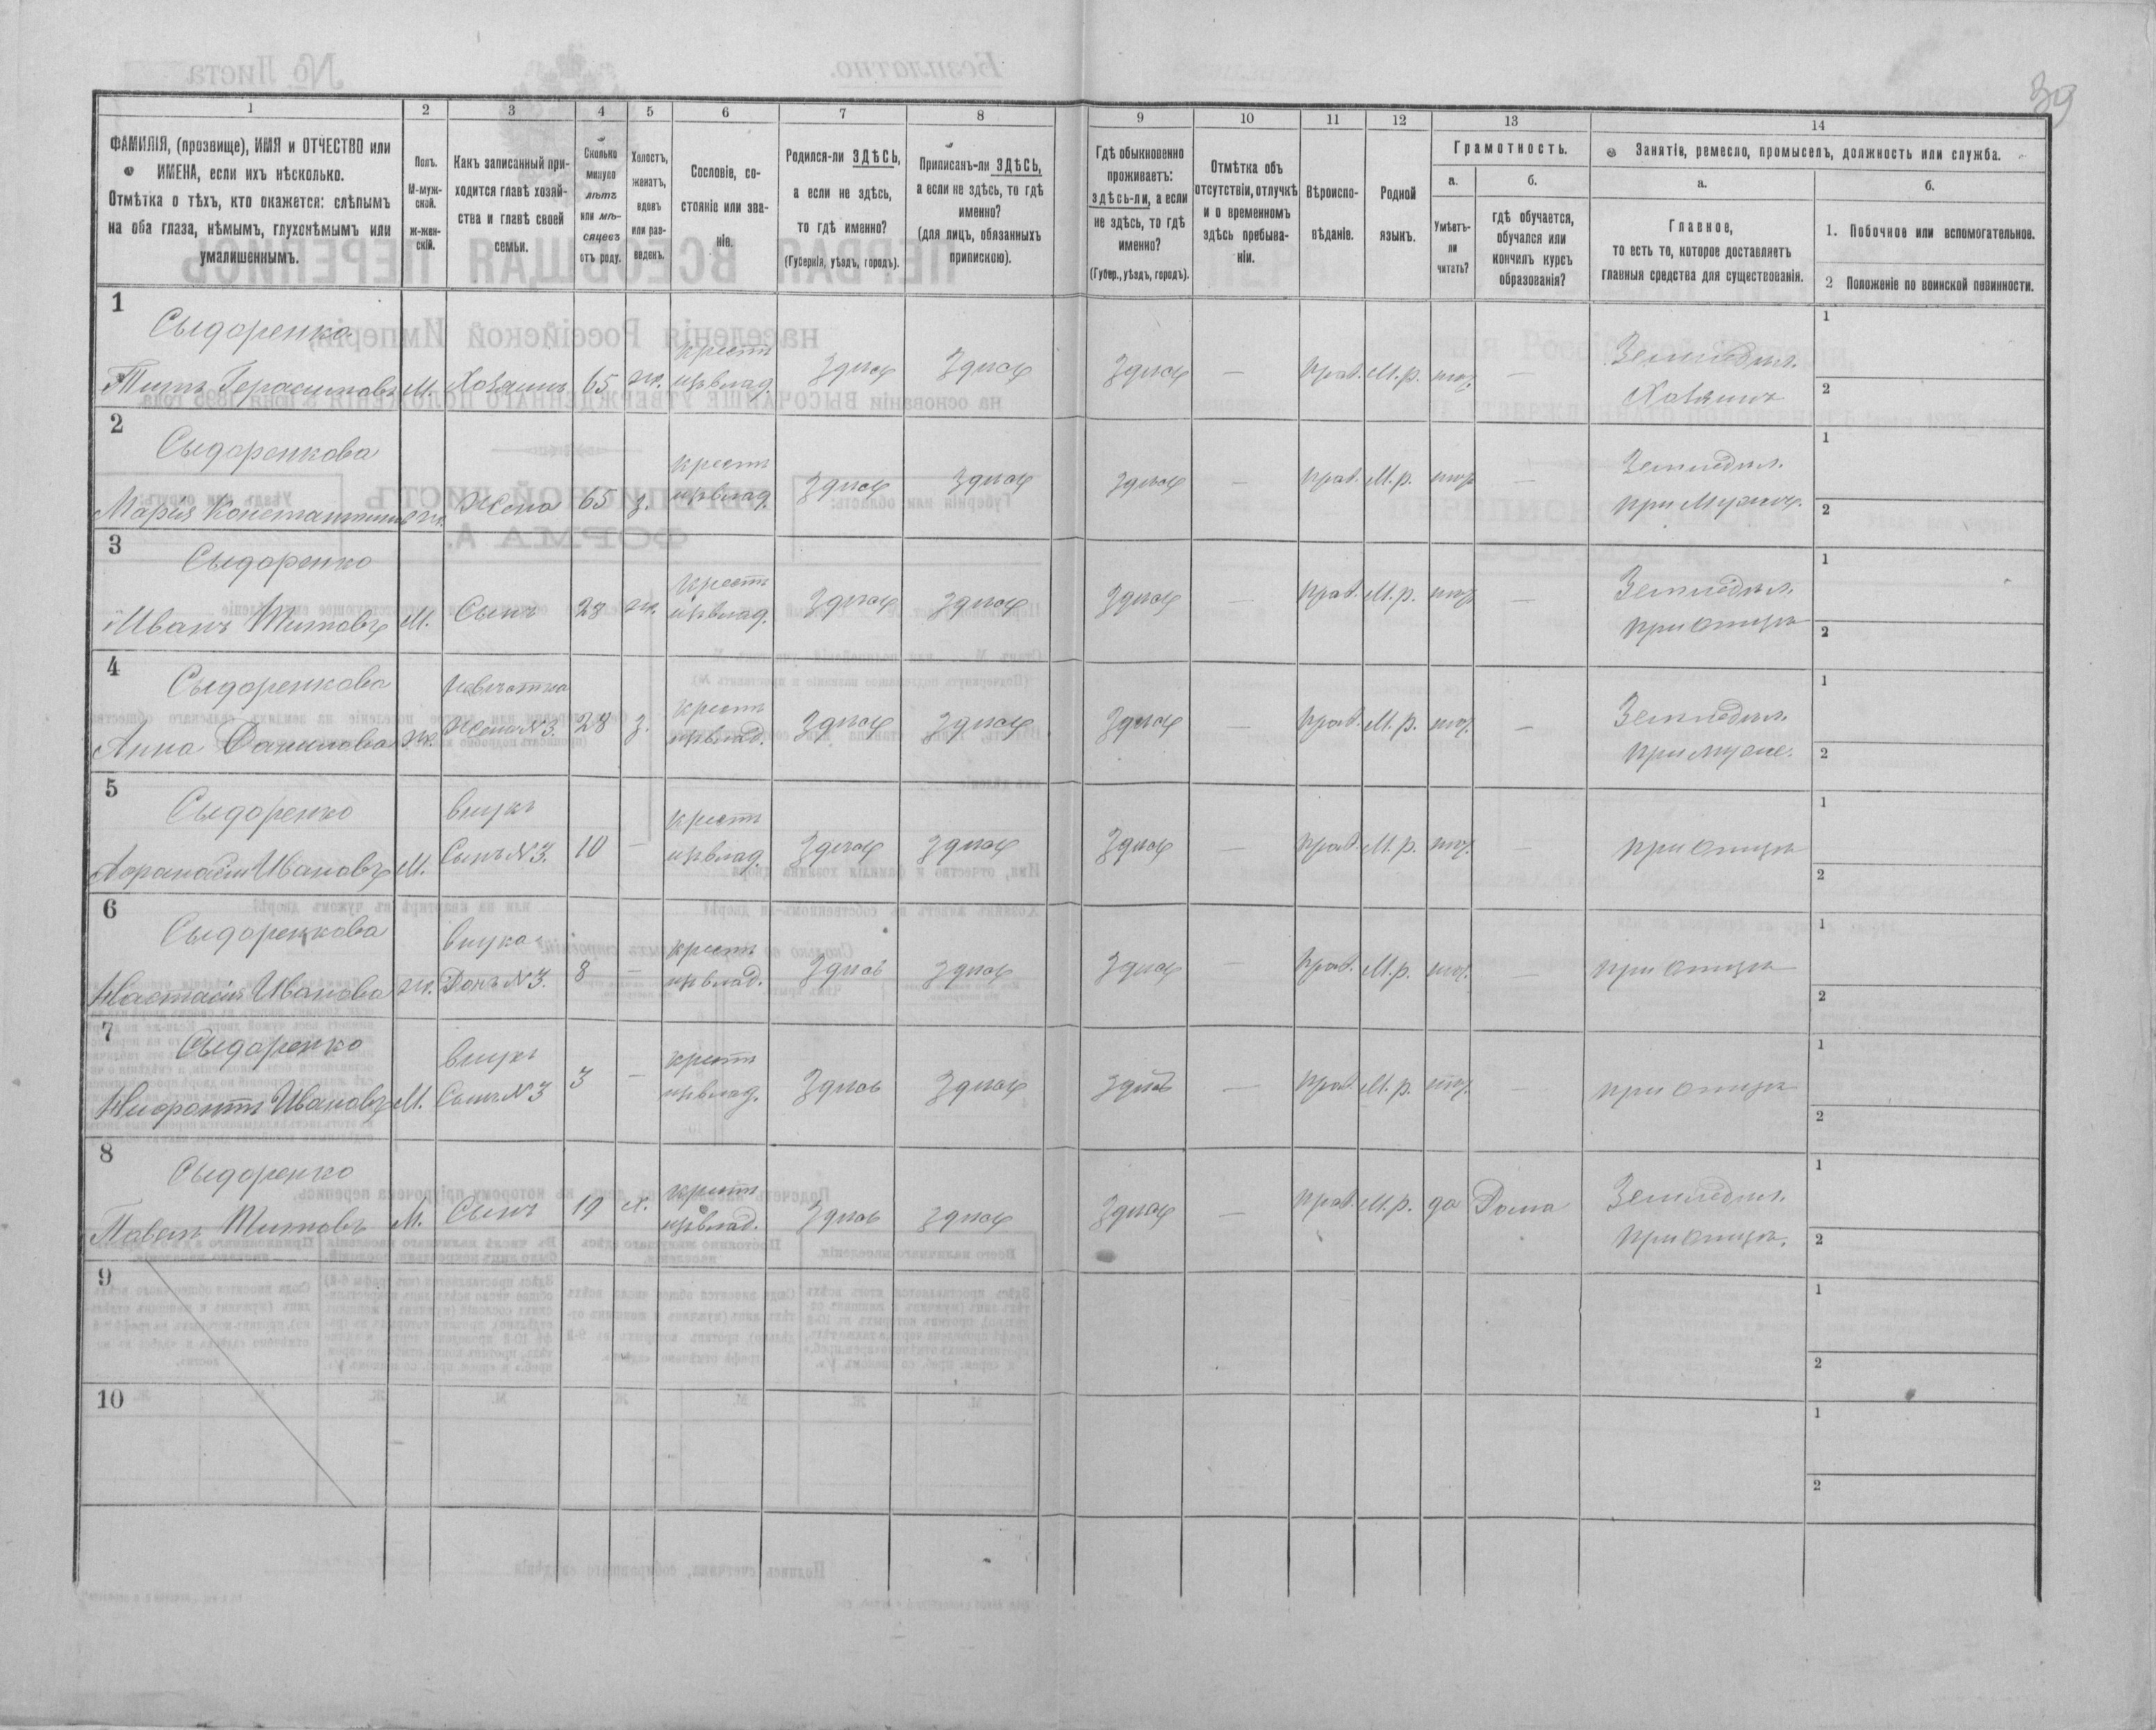 39
1 2 3 4 5 6 7 8 9 10 11 12 13 14
ФАМИЛІЯ, (прозвище), ИМЯ и ОТЧЕСТВО или
ИМЕНА, если ихъ нѣсколько.
Отмѣтка о тѣхъ, кто окажется: слѣпымъ
на оба глаза, нѣмымъ, глухонѣмымъ или
умалишеннымъ.
Полъ.
М-муж-
ской.
ж-жен-
скій.
Какъ записанный при-
ходится главѣ хозяй-
ства и главѣ своей
семьи.
Сколько
минуло
лѣтъ
или мѣ-
сяцевъ
отъ роду.
Холостъ,
женатъ,
вдовъ
или раз-
веденъ.
Сословіе, со-
стояніе или зва-
ніе.
Родился-ли ЗДѢСЬ,
а если не здѣсь,
то гдѣ именно?
(Губернія, уѣздъ, городъ).
Приписанъ-ли ЗДѢСЬ,
а если не здѣсь, то гдѣ
именно?
(для лицъ, обязанныхъ
припискою).
Гдѣ обыкновенно
проживаетъ:
здѣсь-ли, а если
не здѣсь, то гдѣ
именно?
(Губер., уѣздъ, городъ).
Отмѣтка объ
отсутствіи, отлучкѣ
и о временномъ
здѣсь пребыва-
ніи.
Вѣроиспо-
вѣданіе.
Родной
языкъ.
Грамотность.
а.
Умѣетъ-
ли
читать?
б.
гдѣ обучается,
обучался или
кончилъ курсъ
образованія?
Занятіе, ремесло, промыселъ, должность или служба.
а.
Главное,
то есть то, которое доставляетъ
главныя средства для существованія.
б.
1. Побочное или вспомогательное.
2 Положеніе по воинской повинности.
1
Сыдоренко
Титъ Герасимовъ М. Хозяинъ 65 ж. крест. здѣсь здѣсь здѣсь — прав. М.р. нѣт. — Земледѣл.
Хозяинъ
1
2
2
Сыдоренкова
Марія Константинова ж. Жена 65 з. крест. здѣсь здѣсь здѣсь — прав. М.р. нѣт — Земледѣл.
при мужѣ.
1
2
3
Сыдоренко
Иванъ Титовъ М. Сынъ 28 ж. крест. здѣсь здѣсь здѣсь — прав. М.р. нѣт — Земледѣл.
при отцѣ
1
2
4
Сыдоренкова невѣстка
Анна Данилова ж. Жена №3. 28 з. крест. здѣсь здѣсь здѣсь — прав. М.р. нѣт. — Земледѣл.
при мужѣ.
1
2
5
Сыдоренко внукъ
Афанасій Ивановъ М. Сынъ №3. 10 — крест. здѣсь здѣсь здѣсь — прав. М.р. нѣт. — при отцѣ
1
2
6
Сыдоренкова внука
Настасія Иванова ж. Дочь №3. 8 — крест. здѣсь здѣсь здѣсь — прав. М.р. нѣт. — при отцѣ
1
2
7
Сыдоренко внукъ
Ивановъ М. Сынъ №3 3 — крест. здѣсь здѣсь здѣсь — прав. М.р. нѣт. при отцѣ
1
2
8
Сыдоренко
Павелъ Титовъ М. Сынъ 19 х. крест. здѣсь здѣсь здѣсь — прав. М.р. да Дома Земледѣл.
при отцѣ.
1
2
9
1
2
10
1
2